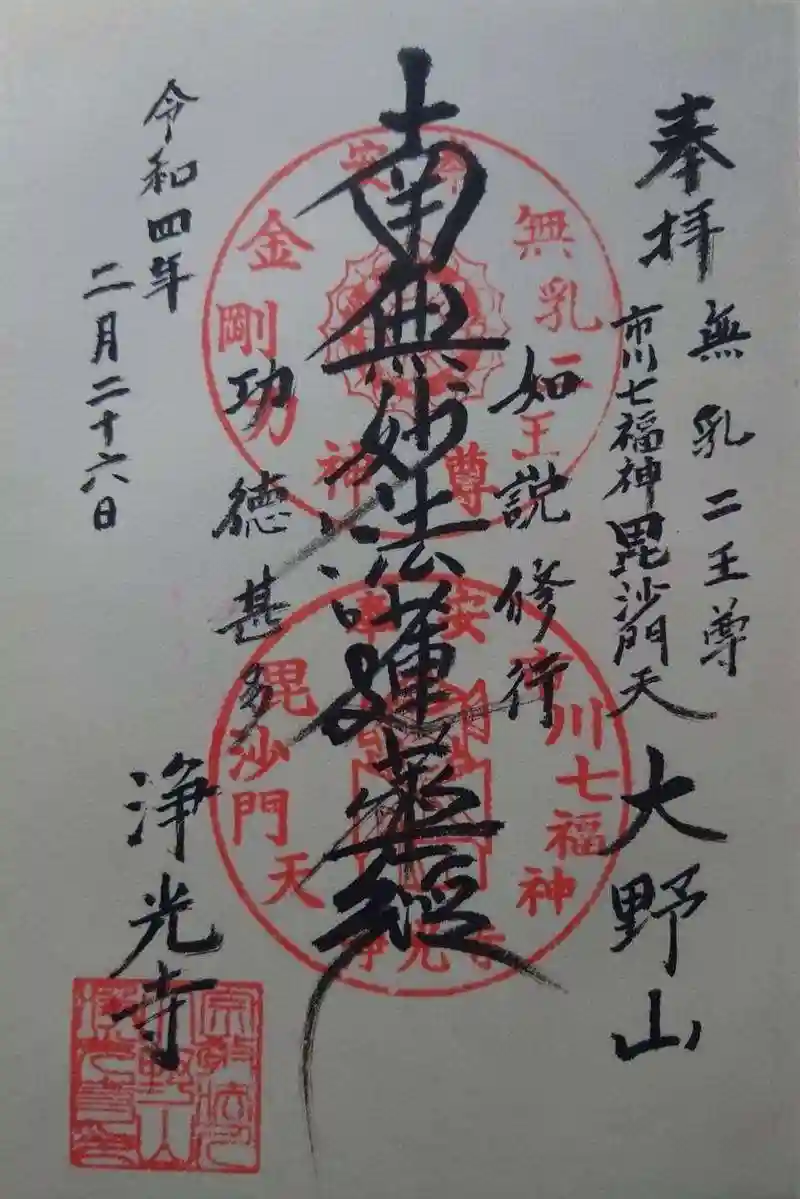 奉拝
無乳二王尊
市川七福神毘沙門天
大野山
如説修行
南無妙法蓮華經
功徳甚多
浄光寺
令和四年
二月二十六日
無乳二王尊
金剛力神
安
市川七福神
毘沙門天
安
浄光寺